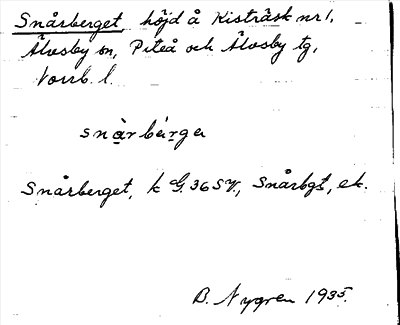 Snårberget, höjd å Kisträsk nr 1,
Älvsby sn, Piteå och Älvsby tg,
Norrb. l.
snàrbárga
Snårberget, k G. 36 SV., Snårbgt, ek.
B. Nygren 1935.